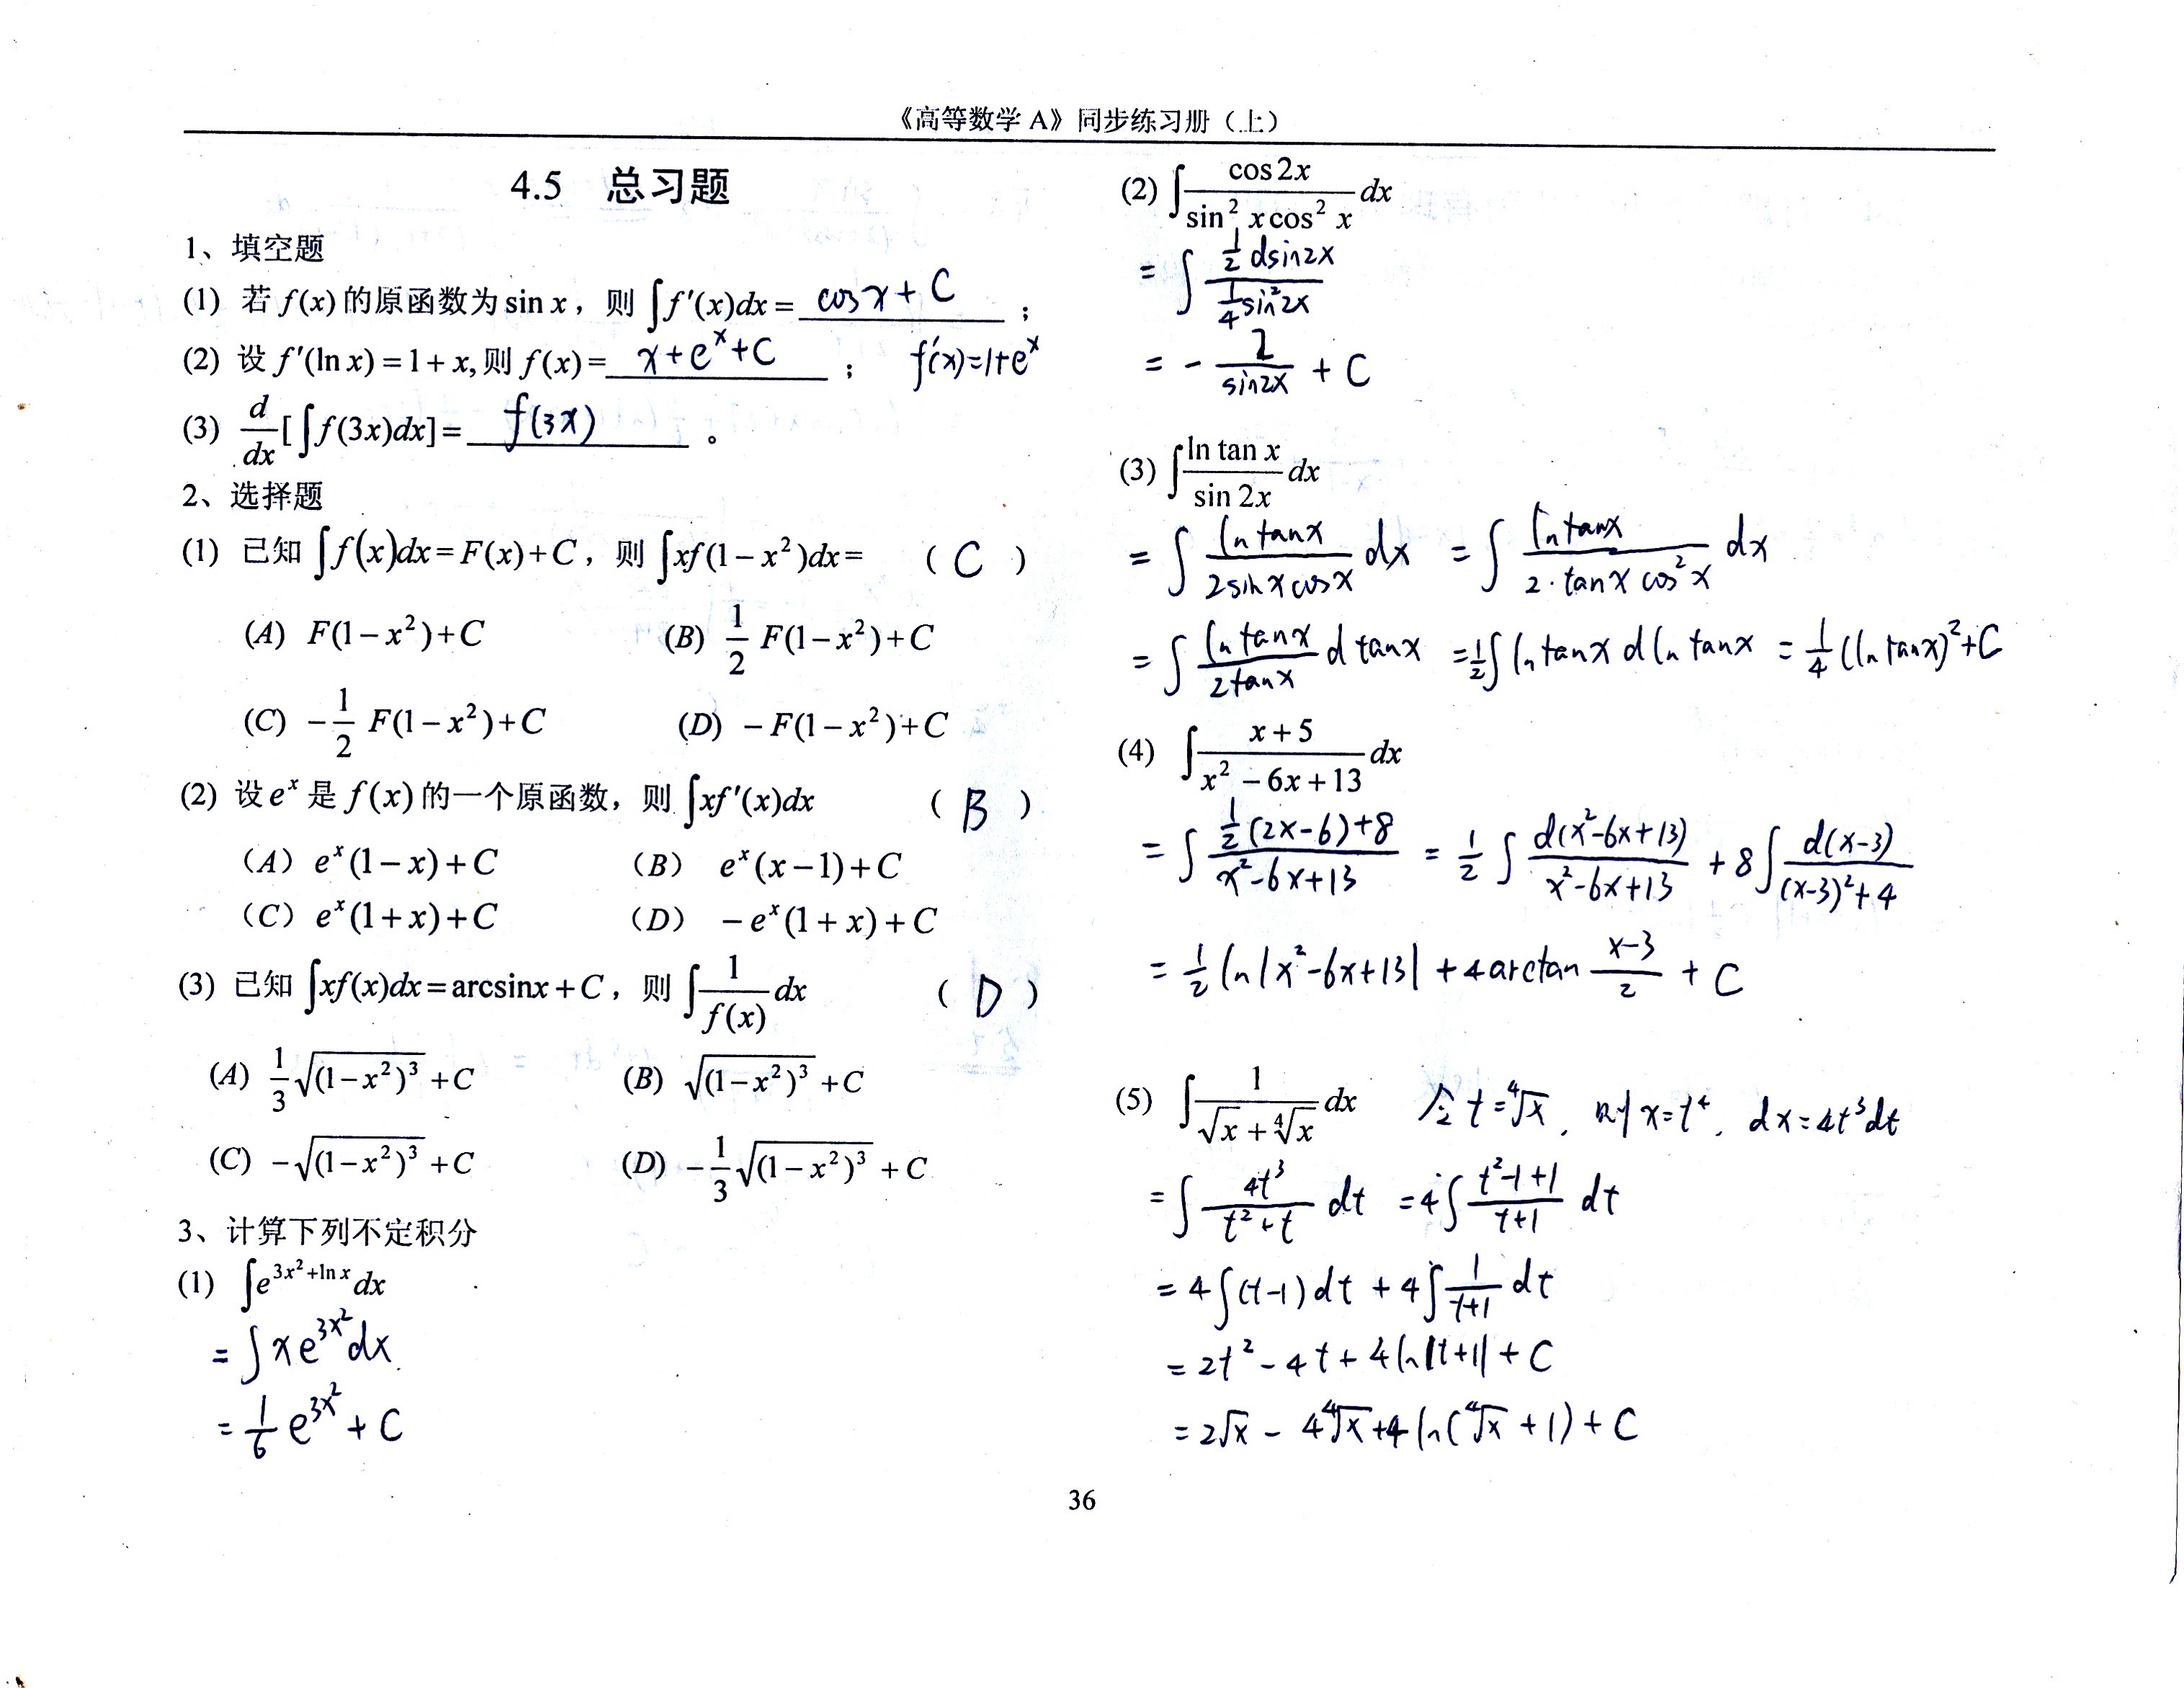 《高等数学 A》同步练习册（上）
4.5 总习题
1、填空题
(1) 若 f(x) 的原函数为 sin x，则 ∫f′(x)dx = cosx + C ；
(2) 设 f′(ln x) = 1 + x, 则 f(x) = x+e^x+C ； f′(x)=1+e^x
(3) d/dx [∫f(3x)dx] = f(3x) 。
2、选择题
(1) 已知 ∫f(x)dx = F(x)+C，则 ∫xf(1−x²)dx = （ C ）
(A) F(1−x²)+C (B) 1/2 F(1−x²)+C
(C) −1/2 F(1−x²)+C (D) −F(1−x²)+C
(2) 设 e^x 是 f(x) 的一个原函数，则 ∫xf′(x)dx （ B ）
（A）e^x(1−x)+C （B） e^x(x−1)+C
（C）e^x(1+x)+C （D） −e^x(1+x)+C
(3) 已知 ∫xf(x)dx = arcsinx + C，则 ∫1/f(x) dx （ D ）
(A) 1/3 √((1−x²)³) + C (B) √((1−x²)³) + C
(C) −√((1−x²)³) + C (D) −1/3 √((1−x²)³) + C
3、计算下列不定积分
(1) ∫e^(3x²+ln x) dx
= ∫xe^(3x²)dx
= 1/6 e^(3x²) + C
(2) ∫cos2x/(sin² x cos² x) dx
= ∫(1/2 dsin2x)/(1/4 sin²2x)
= − 2/sin2x + C
(3) ∫ln tan x/sin 2x dx
= ∫ln tanx/(2sinxcosx) dx = ∫ln tanx/(2·tanx cos²x) dx
= ∫ln tanx/(2tanx) d tanx = 1/2∫ln tanx d ln tanx = 1/4 (ln tanx)²+C
(4) ∫(x+5)/(x²−6x+13) dx
= ∫(1/2(2x−6)+8)/(x²−6x+13) = 1/2 ∫d(x²−6x+13)/(x²−6x+13) + 8∫d(x−3)/((x−3)²+4)
= 1/2 ln|x²−6x+13| + 4arctan (x−3)/2 + C
(5) ∫1/(√x + ∜x) dx 令 t=∜x, 则 x=t⁴, dx=4t³dt
= ∫4t³/(t²+t) dt = 4∫(t²−1+1)/(t+1) dt
= 4∫(t−1)dt + 4∫1/(t+1) dt
= 2t²−4t+4ln|t+1|+C
= 2√x − 4∜x+4ln(∜x+1)+C
36